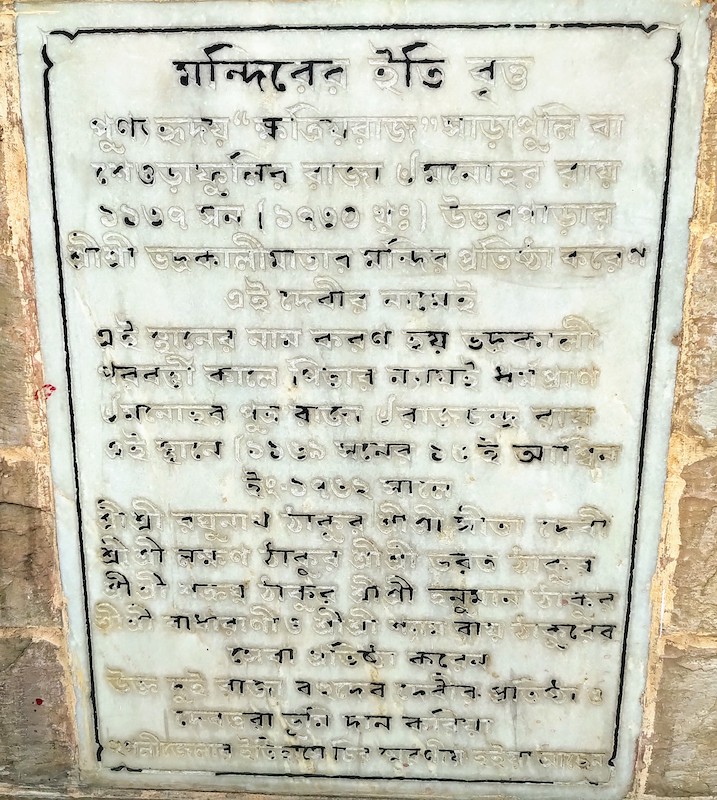 মন্দিরের ইতি বৃত্ত
পুণ্য হৃদয় "ক্ষত্রিয়রাজ" সাড়াপুলি বা
শেওড়াফুলির রাজা ৺মনোহর রায়
১১৩৭ সন (১৭৩০ খৃঃ) উত্তরপাড়ায়
শ্রীশ্রী ভদ্রকালীমাতার মন্দির প্রতিষ্ঠা করেণ
এই দেবীর নামেই
এই স্থানের নাম করণ হয় ভদ্রকালী
পরবর্ত্তী কালে পিতার ধর্ম্মপ্রাণ
৺মনোহর পুত্র রাজা ৺রাজচন্দ্র রায়
এই স্থানে (১১৩৯ সনের ১৫ই আশ্বিন
ইং ১৭৩২ সালে
শ্রী শ্রী রঘুনাথ ঠাকুর শ্রীশ্রী সীতা দেবী
শ্রী শ্রী লক্ষণ ঠাকুর শ্রীশ্রী ভরত ঠাকুর
শ্রী শ্রী শত্রুঘ্ন ঠাকুর শ্রীশ্রী হনুমান ঠাকুর
শ্রীশ্রী রাধারাণী ও শ্রীশ্রী শ্যাম রায় ঠাকুরের
সেবা প্রতিষ্ঠা করেন
উক্ত দুই রাজা দেবীর প্রতিষ্ঠা ও
দেবোত্তর ভূমি দান করিয়া
হুগলীজেলার ইতিহাসে চির স্মরণীয় হইয়া আছেন